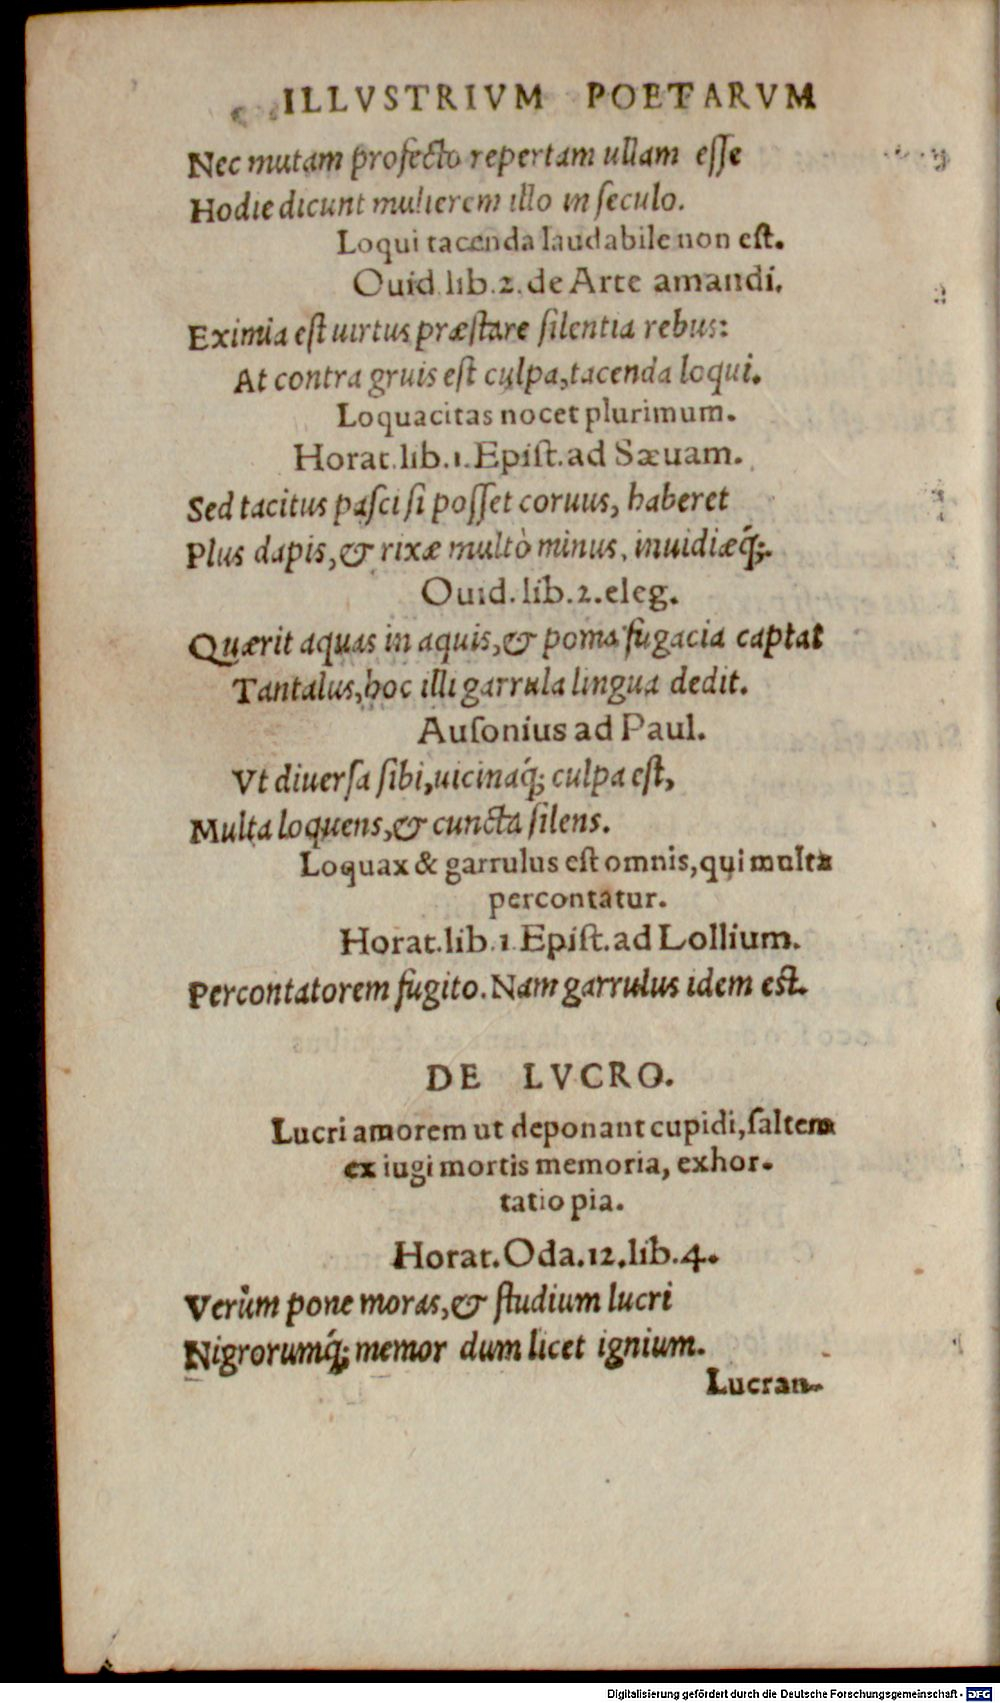 ILLVSTRIVM POETARVM
Nec mutam profecto repertam ullam eſſe
Hodie dicunt mulierem illo in ſeculo.
Loqui tacenda laudabile non eſt.
Ouid. lib. 2. de Arte amandi.
Eximia eſt uirtus præſtare ſilentia rebus:
At contra gruis eſt culpa, tacenda loqui.
Loquacitas nocet plurimum.
Horat. lib. 1. Epiſt. ad Sæuam.
Sed tacitus paſci ſi poſſet coruus, haberet
Plus dapis, & rixæ multò minus, inuidiæq́;.
Ouid. lib. 2. eleg.
Quærit aquas in aquis, & poma fugacia captat
Tantalus, hoc illi garrula lingua dedit.
Auſonius ad Paul.
Vt diuerſa ſibi, uicinaq́; culpa eſt,
Multa loquens, & cuncta ſilens.
Loquax & garrulus eſt omnis, qui multa
percontatur.
Horat. lib. 1 Epiſt. ad Lollium.
Percontatorem fugito. Nam garrulus idem eſt.
DE LVCRO.
Lucri amorem ut deponant cupidi, ſaltem
ex iugi mortis memoria, exhor-
tatio pia.
Horat. Oda. 12. lib. 4.
Verùm pone moras, & ſtudium lucri
Nigrorumq́; memor dum licet ignium.
Lucran-
Digitalisierung gefördert durch die Deutsche Forschungsgemeinschaft - DFG